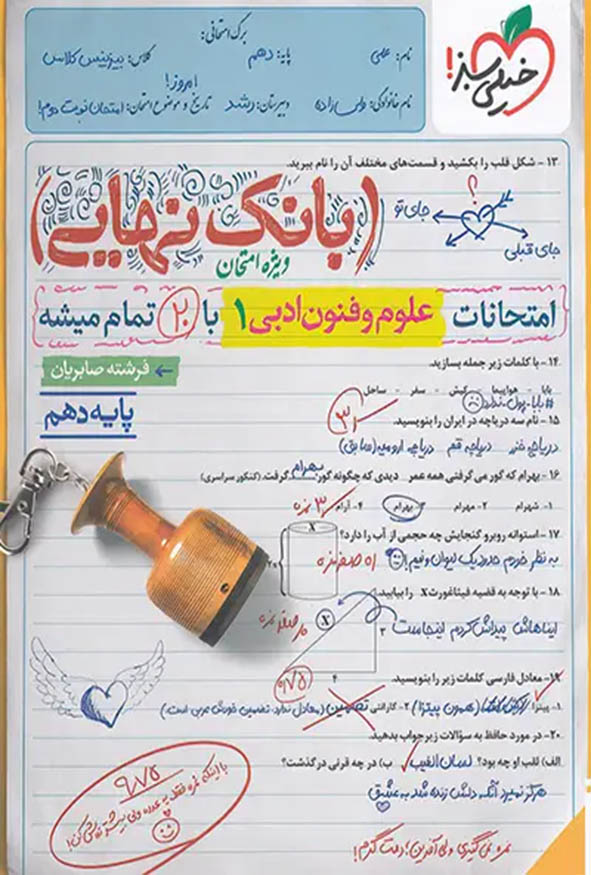 خیلی سبز!
برگ امتحانی:
نام: علی
پایه: دهم
کلاس: بیزینس کلاس
امروز!
نام خانوادگی:
دبیرستان: رشد
تاریخ و موضوع امتحان: امتحان نوبت دوم!
۱۳- شکل قلب را بکشید و قسمت‌های مختلف آن را نام ببرید.
؟
جای تو
جای قبلی
(بانک نهایی)
ویژه امتحان
امتحانات علوم و فنون ادبی ۱ با ۲۰ تمام میشه
۱۴- با کلمات زیر جمله بسازید.
فرشته صابریان
بابا - هواپیما - کیش - سفر - ساحل
#بابا_پول_ندارد
پایه دهم
۱۵- نام سه دریاچه در ایران را بنویسید.
دریاچه خزر دریاچه قم دریاچه ارومیه (سابق)
۱۶- بهرام که گور می گرفتی همه عمر دیدی که چگونه گور بهرام گرفت. (کنکور سراسری)
۱- شهرام ۲- مهرام ۳- بهرام ۴- آرام
۳ نمره
۱۷- استوانه روبرو گنجایش چه حجمی از آب را دارد؟
X
به نظر خودم حدود یک لیوان و نیم!
صفر نمره
۱۸- با توجه به قضیه فیثاغورث X را بیابید.
X
ایناهاش پیداش کردم اینجاست
۳
۴
۰/۷۵
۱۹- معادل فارسی کلمات زیر را بنویسید.
۱- پیتزا (همون پیتزا) ۲- گارانتی تضمین (معادل ندارد. تضمین خودش عربی است.)
۲۰- در مورد حافظ به سؤالات زیر جواب بدهید.
الف) لقب او چه بود؟ لسان الغیب ب) در چه قرنی درگذشت؟
هرگز نمیرد آنکه دلش زنده شد به عشق
۹/۷۵
نمره نمی‌گیری ولی آفرین؛ دمت گرم!